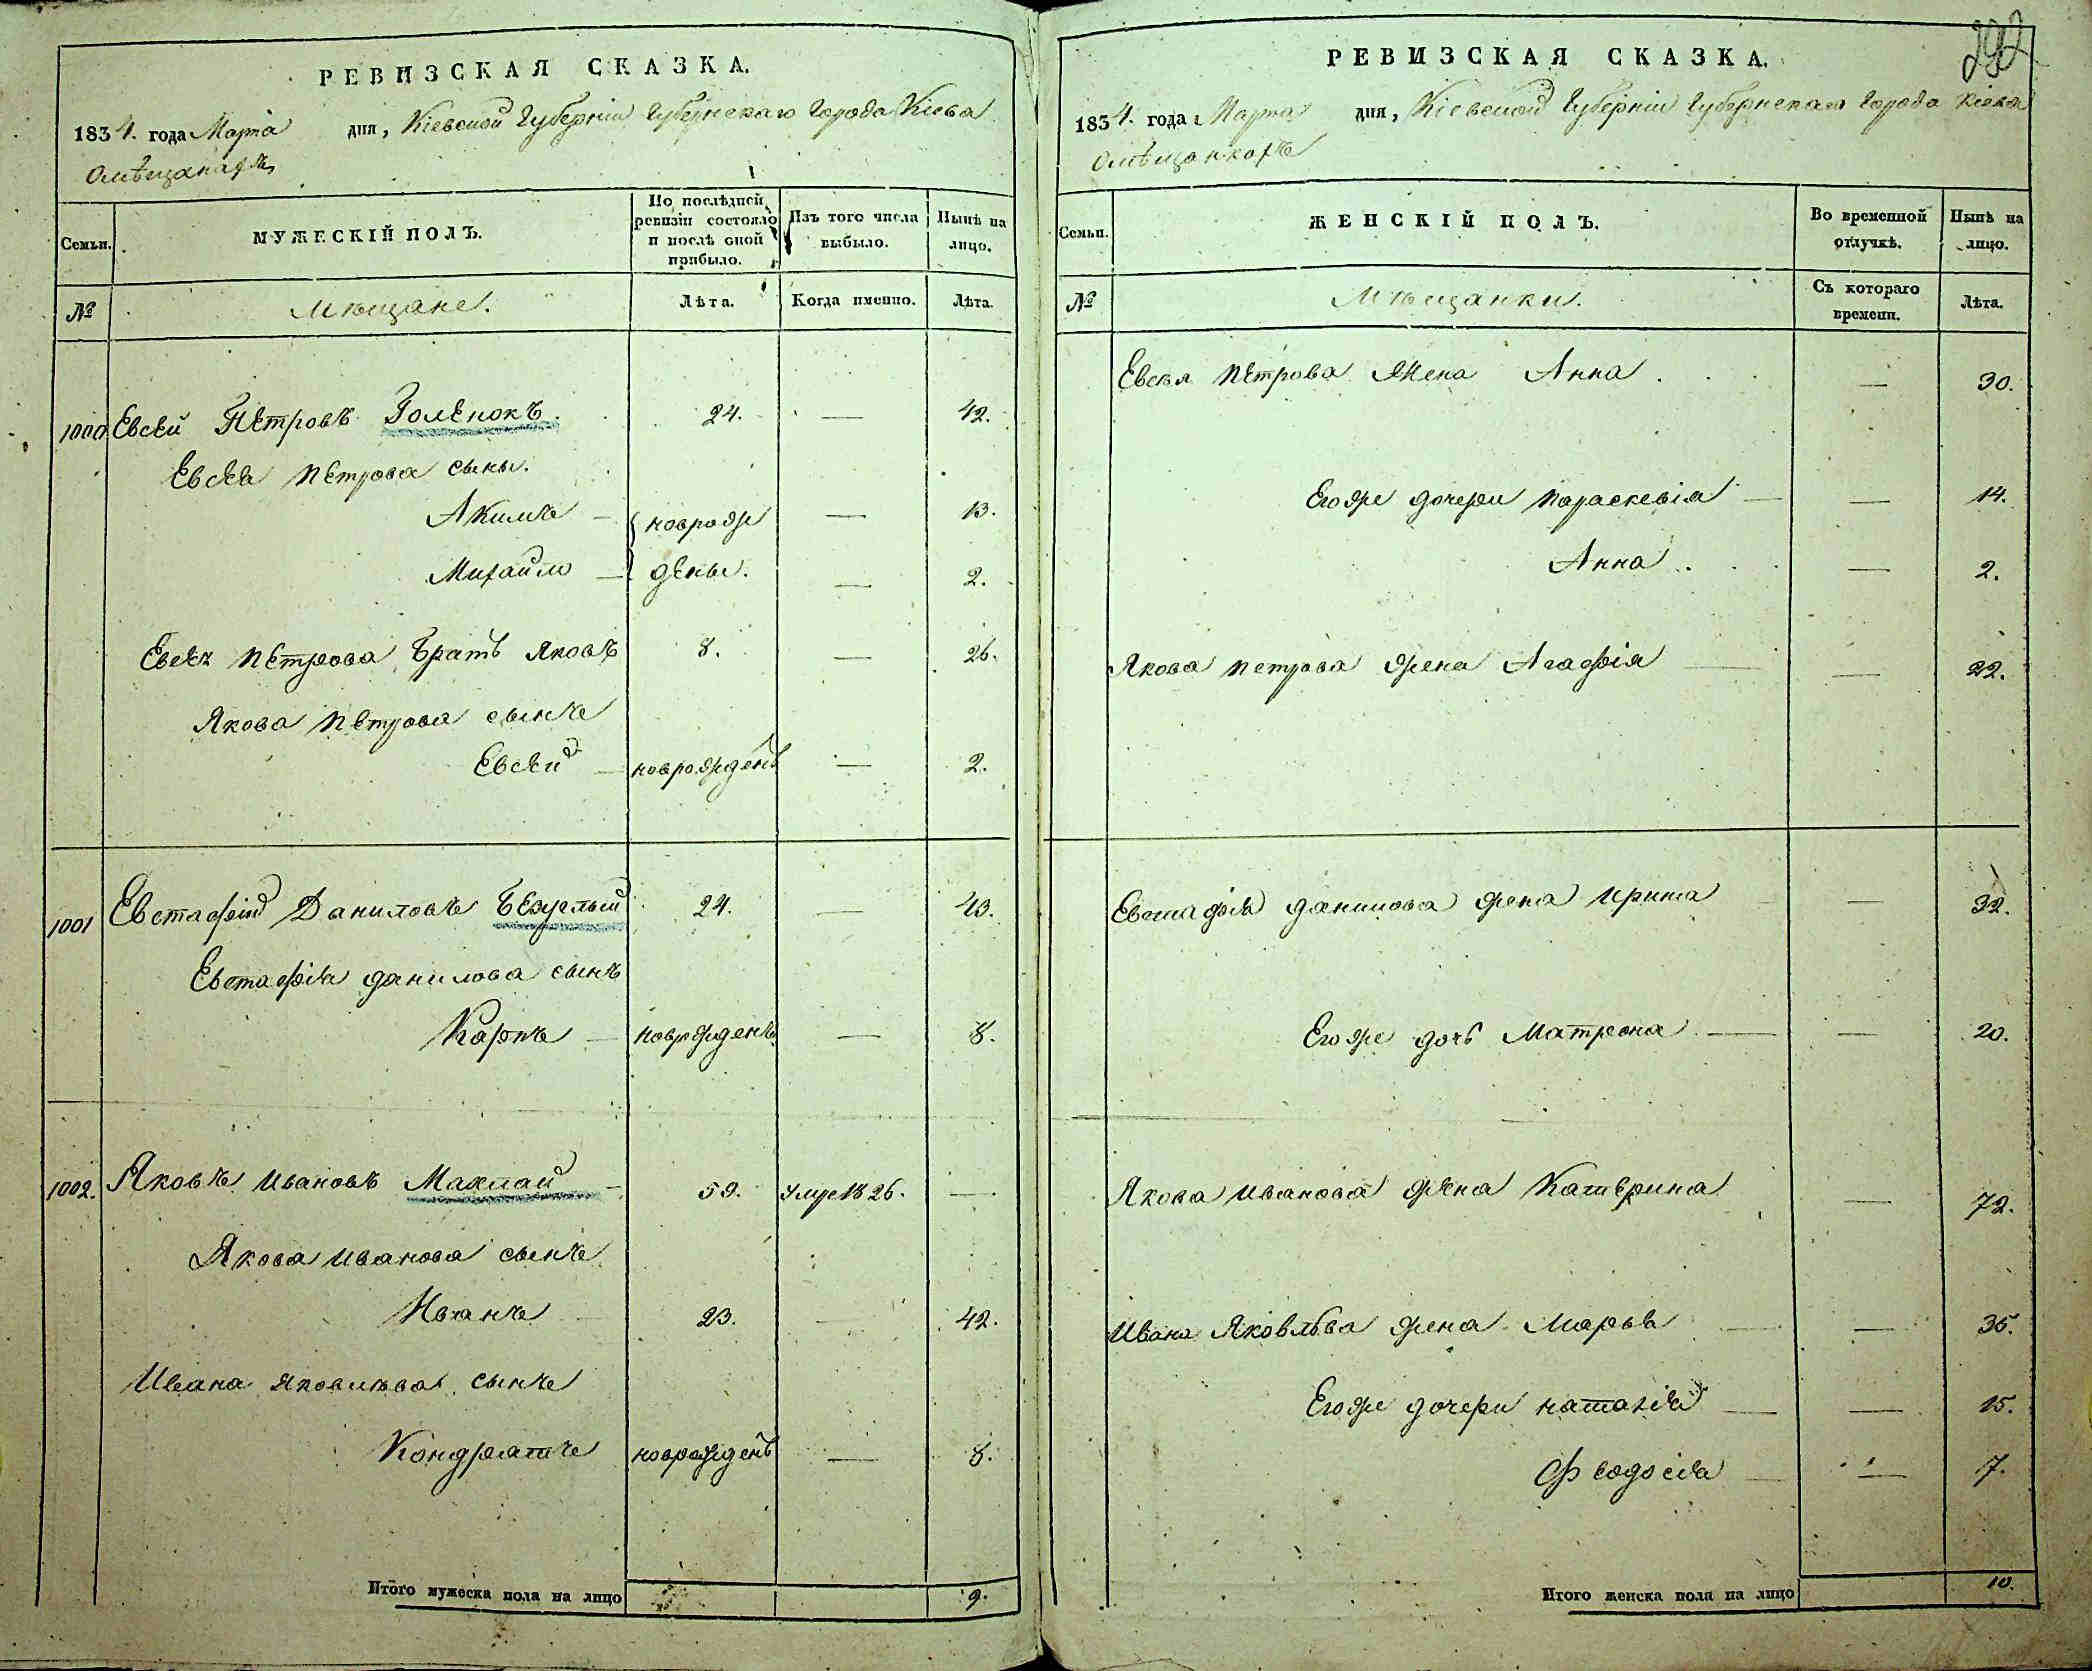 РЕВИЗСКАЯ СКАЗКА.
1834. года Марта дня, Кіевской Губерніи Губернскаго Города Кіева
О мѣщанахъ
Семьи.
МУЖЕСКІЙ ПОЛЪ.
По послѣдней ревизіи состояло и послѣ оной прибыло.
Изъ того числа выбыло.
Нынѣ на лицо.
№
Мѣщане.
Лѣта.
Когда именно.
Лѣта.
1000 Евсей Петровъ Золенокъ. 24. — 42.
Евсея Петрова сыны.
Акимъ — новрож — 13.
Михайло — дены. — 2.
Евсея Петрова братъ Яковъ 8. — 26.
Якова Петрова сынъ
Евсей —новрожденъ — 2.
1001 Евстафій Даниловъ 24. — 43.
Евстафія данилова сынъ
Карпъ —новрожденъ — 8.
1002. Яковъ Ивановъ Маклай — 59. Умре 1826. —
Якова Иванова сынъ
Иванъ 23. — 42.
Ивана Яковлѣва сынъ
Кондратъ новрожденъ — 8.
Итого мужеска пола на лицо 9.
292
РЕВИЗСКАЯ СКАЗКА.
1834. года Марта дня, Кіевской Губерніи Губернскаго Города Кіева
О мѣщанкахъ
Семьи.
ЖЕНСКІЙ ПОЛЪ.
Во временной отлучкѣ.
Нынѣ на лицо.
№
Мѣщанки.
Съ котораго времени.
Лѣта.
Евсея Петрова Жена Анна — 30.
Его же дочери Параскевія — — 14.
Анна — 2.
Якова Петрова жена Агафія — — 22.
Евстафія данилова жена Ирина — 32.
Его же дочь Матрона — — 20.
Якова Иванова жена Катерина — 72.
Ивана Яковлѣва жена Марья — — 35.
Его же дочери наталія — — 15.
Феодосія — — 7.
Итого женска пола на лицо 10.